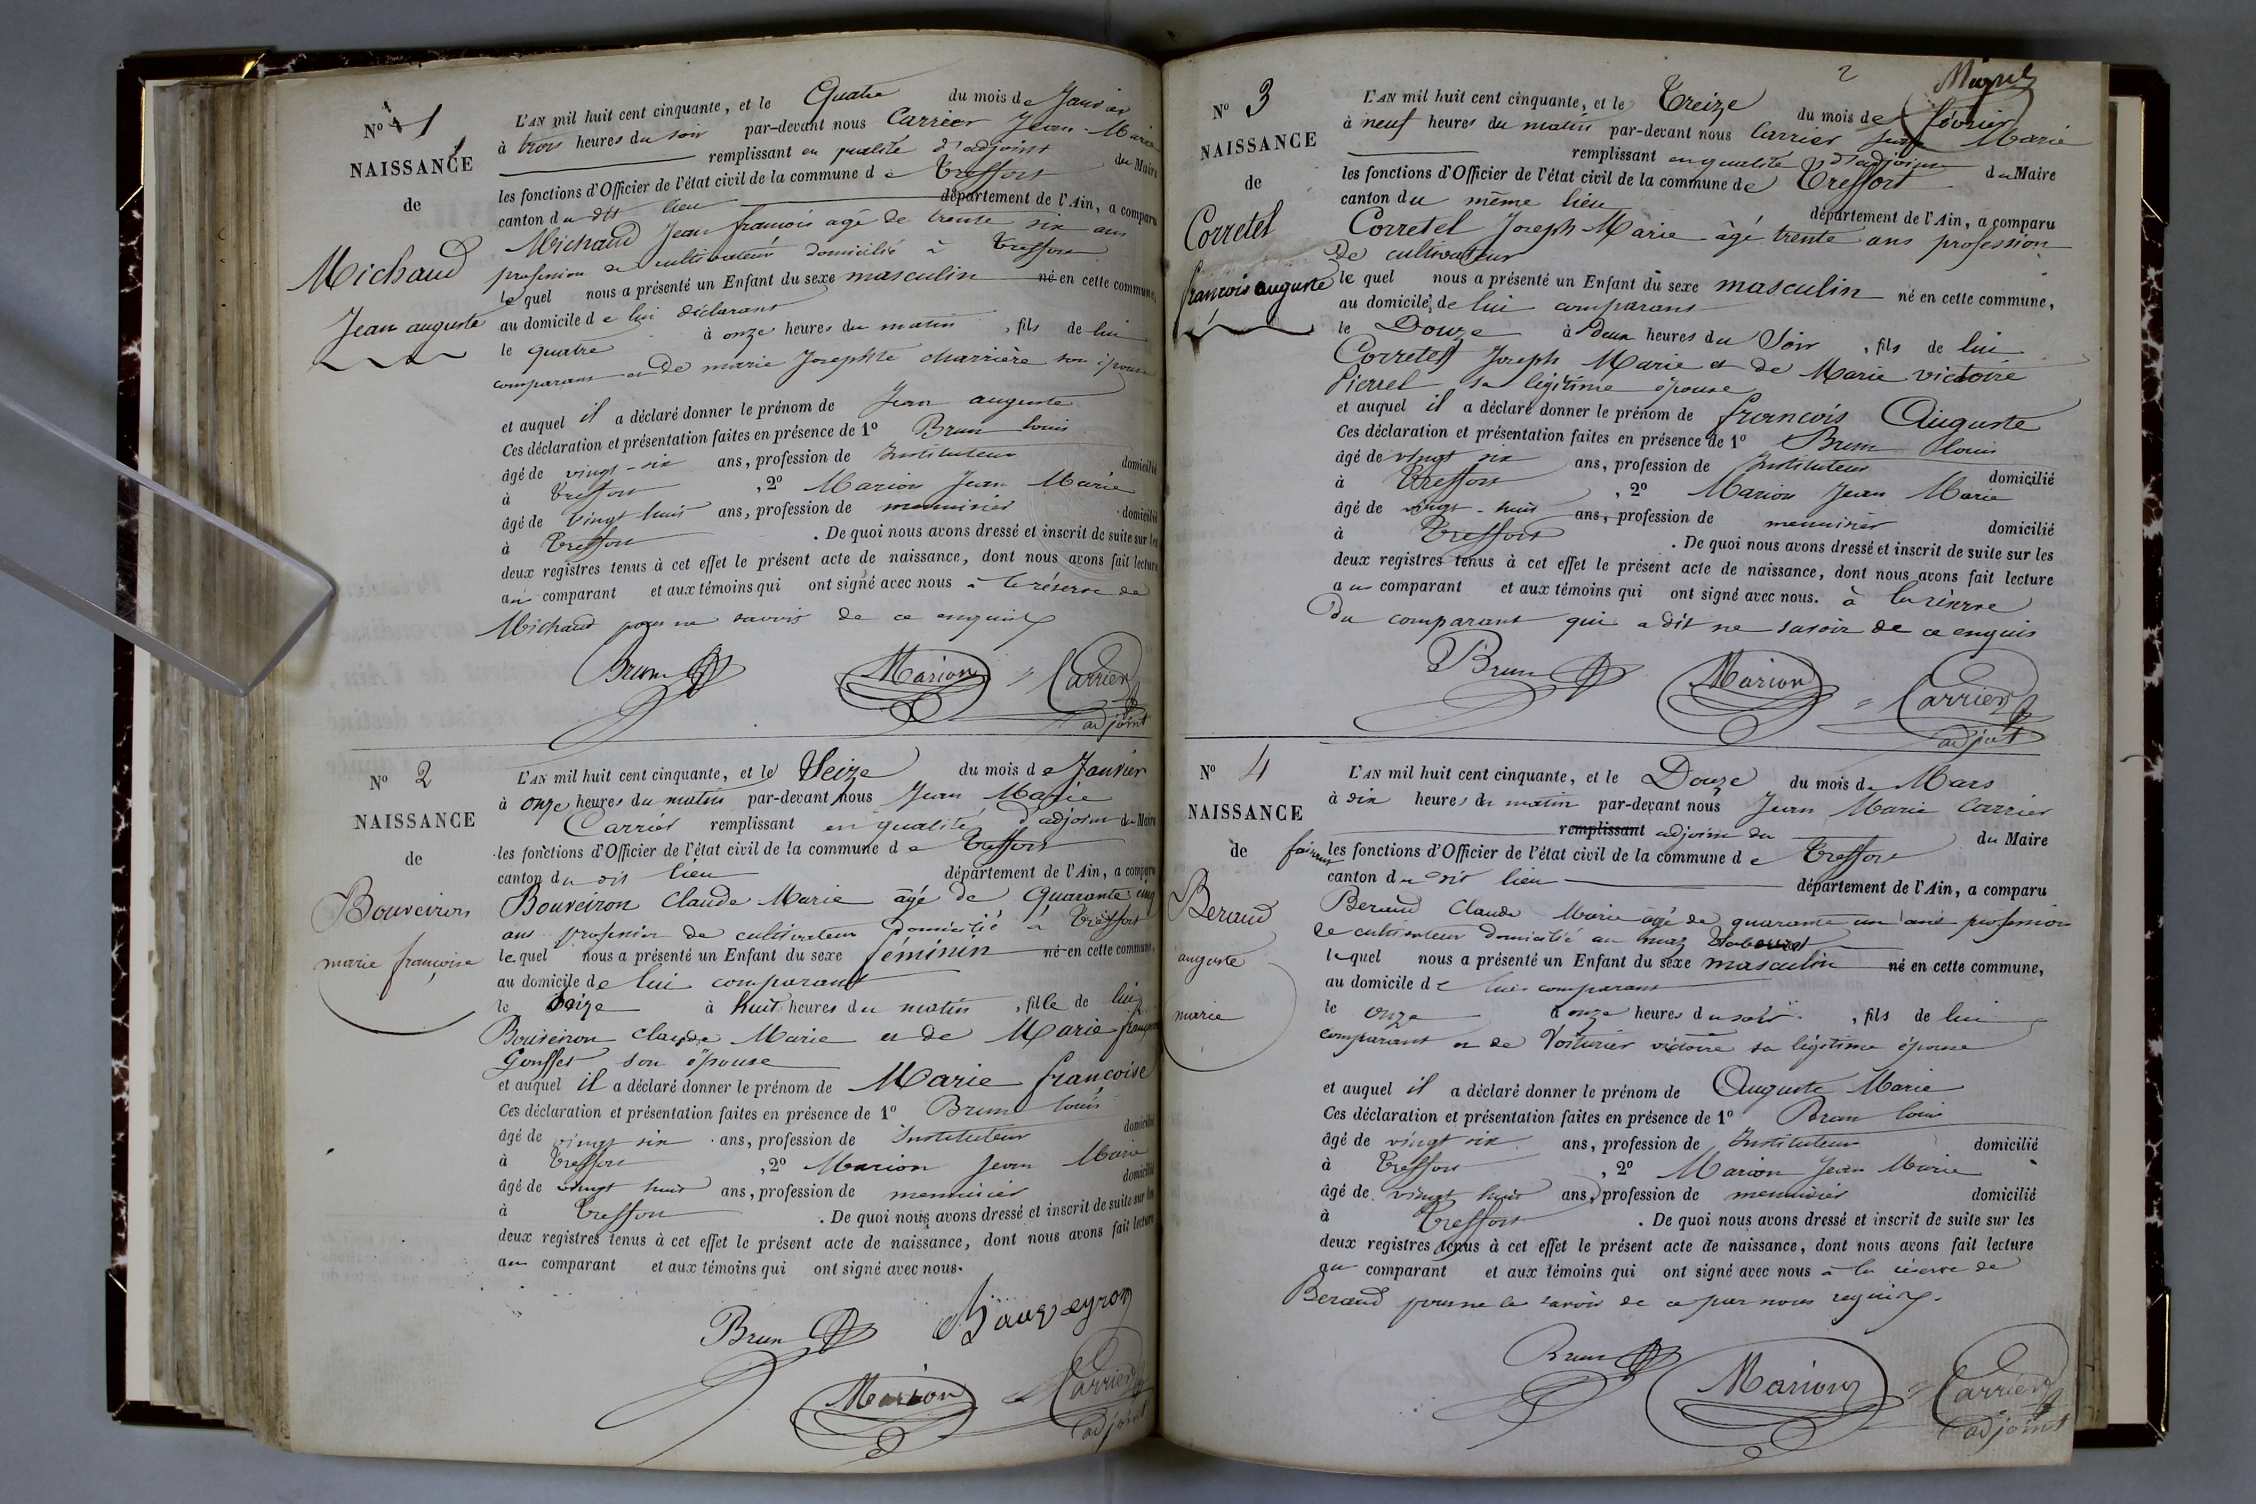 N° 1
NAISSANCE
de
Michaud
Jean auguste
L'AN mil huit cent cinquante, et le Quatre du mois de Janvier
à trois heures du soir par-devant nous Carrier Jean-Marie
remplissant en qualité d'adjoint du Maire
les fonctions d'Officier de l'état civil de la commune de Treffort
canton du dit lieu département de l'Ain, a comparu
Michaud Jean francois agé de trente six ans
profession de cultivateur domicilié à Treffort
lequel nous a présenté un Enfant du sexe masculin né en cette commune,
au domicile de lui déclarant
le quatre à onze heures du matin, fils de lui
comparant et de marie Josephte charrière son épouse
et auquel il a déclaré donner le prénom de Jean auguste
Ces déclaration et présentation faites en présence de 1° Brun louis
âgé de vingt-six ans, profession de Instituteur domicilié
à Treffort, 2° Marion Jean Marie
âgé de vingt huit ans, profession de menuisier domicilié
à Treffort. De quoi nous avons dressé et inscrit de suite sur les
deux registres tenus à cet effet le présent acte de naissance, dont nous avons fait lecture
au comparant et aux témoins qui ont signé avec nous à la réserve de
Michaud pour ne savoir de ce enquis
Brun Marion Carrier
adjoint
N° 2
NAISSANCE
de
Bouveiron
marie françoise
L'AN mil huit cent cinquante, et le Seize du mois de Janvier
à onze heures du matin par-devant nous Jean Marie
Carrier remplissant en qualité d'adjoint du Maire
les fonctions d'Officier de l'état civil de la commune de Treffort
canton du dit lieu département de l'Ain, a comparu
Bouveiron Claude Marie âgé de Quarante cinq
ans profession de cultivateur domicilié à Treffort
lequel nous a présenté un Enfant du sexe féminin né en cette commune,
au domicile de lui comparant
le Seize à huit heures du matin, fille de lui
Bouveiron Claude Marie et de Marie françoise
Gouffet son épouse
et auquel il a déclaré donner le prénom de Marie françoise
Ces déclaration et présentation faites en présence de 1° Brun louis
âgé de vingt six ans, profession de instituteur domicilié
à Treffort, 2° Marion Jean Marie
âgé de vingt huit ans, profession de menuisier domicilié
à Treffort. De quoi nous avons dressé et inscrit de suite sur les
deux registres tenus à cet effet le présent acte de naissance, dont nous avons fait lecture
au comparant et aux témoins qui ont signé avec nous.
Brun Bauveyron
Marion Carrier
adjoint
2
N° 3
NAISSANCE
de
Corretel
françois auguste
L'AN mil huit cent cinquante, et le Treize du mois de février
à neuf heures du matin par-devant nous Carrier Jean Marie
remplissant en qualité d'adjoint du Maire
les fonctions d'Officier de l'état civil de la commune de Treffort
canton du même lieu département de l'Ain, a comparu
Corretel Joseph-Marie âgé trente ans profession
de cultivateur
lequel nous a présenté un Enfant du sexe masculin né en cette commune,
au domicile de lui comparant
le Douze à deux heures du Soir, fils de lui
Corretel Joseph Marie et de Marie victoire
Pierrel sa légitime épouse
et auquel il a déclaré donner le prénom de françois Auguste
Ces déclaration et présentation faites en présence de 1° Brun louis
âgé de vingt six ans, profession de Instituteur domicilié
à Treffort, 2° Marion Jean Marie
âgé de vingt-huit ans, profession de menuisier domicilié
à Treffort. De quoi nous avons dressé et inscrit de suite sur les
deux registres tenus à cet effet le présent acte de naissance, dont nous avons fait lecture
au comparant et aux témoins qui ont signé avec nous. à la réserve
Du comparant qui a dit ne savoir de ce enquis
Brun Marion Carrier
adjoint
N° 4
NAISSANCE
de
Beraud
auguste
marie
L'AN mil huit cent cinquante, et le Douze du mois de Mars
à dix heures du matin par-devant nous Jean Marie Carrier
remplissant adjoint du du Maire
les fonctions d'Officier de l'état civil de la commune de Treffort
canton du dit lieu département de l'Ain, a comparu
Beraud Claude Marie âgé de quarante un ans profession
de cultivateur domicilié au maz
lequel nous a présenté un Enfant du sexe masculin né en cette commune,
au domicile de lui comparant
le onze à onze heures du soir, fils de lui
comparant et de Voiturier victoire sa légitime épouse
et auquel il a déclaré donner le prénom de Auguste Marie
Ces déclaration et présentation faites en présence de 1° Brun louis
âgé de vingt six ans, profession de Instituteur domicilié
à Treffort, 2° Marion Jean Marie
âgé de vingt huit ans, profession de menuisier domicilié
à Treffort. De quoi nous avons dressé et inscrit de suite sur les
deux registres tenus à cet effet le présent acte de naissance, dont nous avons fait lecture
au comparant et aux témoins qui ont signé avec nous à la réserve de
Beraud pour ne le savoir de ce par nous requis.
Brun Marion Carrier
adjoint